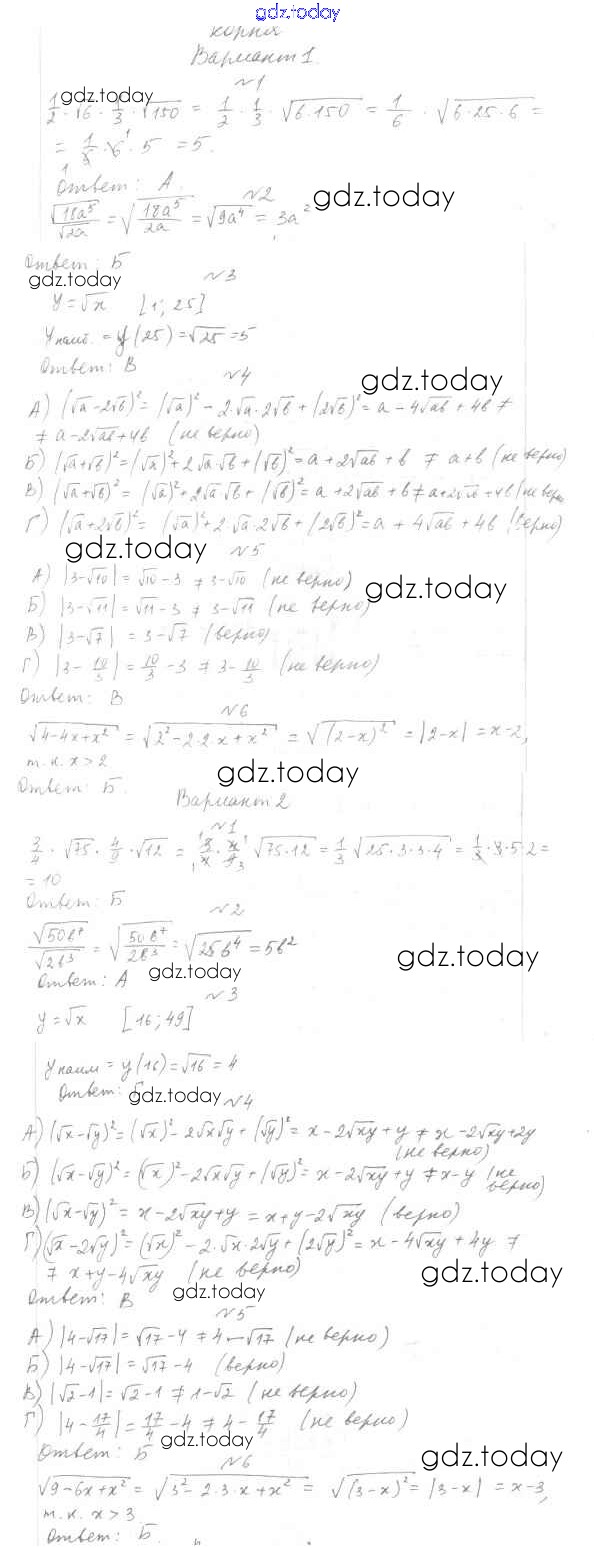 gdz.today
корня
Вариант 1.
№1
1/2 · √6 · 1/3 · √150 = 1/2 · 1/3 · √(6·150) = 1/6 · √(6·25·6) =
= 1/6 · 6 · 5 = 5.
Ответ: А.
№2
√(18a⁵)/√(2a) = √(18a⁵/2a) = √(9a⁴) = 3a²
Ответ: Б
№3
y = √x [1; 25]
y наиб. = y(25) = √25 = 5
Ответ: В
№4
А) (√a - 2√b)² = (√a)² - 2·√a·2√b + (2√b)² = a - 4√ab + 4b ≠
≠ a - 2√ab + 4b (не верно)
Б) (√a+√b)² = (√a)² + 2√a·√b + (√b)² = a + 2√ab + b ≠ a+b (не верно)
В) (√a+√b)² = (√a)² + 2√a·√b + (√b)² = a + 2√ab + b ≠ a + 2√ab + 4b (не верно
Г) (√a+2√b)² = (√a)² + 2·√a·2√b + (2√b)² = a + 4√ab + 4b (верно)
№5
А) |3-√10| = √10 - 3 ≠ 3-√10 (не верно)
Б) |3-√11| = √11 - 3 ≠ 3-√11 (не верно)
В) |3-√7| = 3-√7 (верно)
Г) |3 - 10/3| = 10/3 - 3 ≠ 3 - 10/3 (не верно)
Ответ: В
№6
√(4-4x+x²) = √(2²-2·2·x+x²) = √((2-x)²) = |2-x| = x-2,
т.к. x > 2
Ответ: Б.
Вариант 2
№1
3/4 · √75 · 4/9 · √12 = 3/4 · 4/9 √(75·12) = 1/3 √(25·3·3·4) = 1/3 · 3·5·2 =
= 10
Ответ: Б
№2
√(50b⁷)/√(2b³) = √(50b⁷/2b³) = √(25b⁴) = 5b²
Ответ: А
№3
y = √x [16; 49]
y наим = y(16) = √16 = 4
Ответ:
№4
А) (√x-√y)² = (√x)² - 2√x√y + (√y)² = x - 2√xy + y ≠ x - 2√xy + 2y
(не верно)
Б) (√x-√y)² = (√x)² - 2√x√y + (√y)² = x - 2√xy + y ≠ x-y (не
верно)
В) (√x-√y)² = x - 2√xy + y = x + y - 2√xy (верно)
Г) (√x-2√y)² = (√x)² - 2·√x·2√y + (2√y)² = x - 4√xy + 4y ≠
≠ x + y - 4√xy (не верно)
Ответ: В
№5
А) |4-√17| = √17 - 4 ≠ 4-√17 (не верно)
Б) |4-√17| = √17 - 4 (верно)
В) |√2-1| = √2-1 ≠ 1-√2 (не верно)
Г) |4 - 17/4| = 17/4 - 4 ≠ 4 - 17/4 (не верно)
Ответ: Б
№6
√(9-6x+x²) = √(3²-2·3·x+x²) = √((3-x)²) = |3-x| = x-3,
т.к. x > 3
Ответ: Б.
gdz.today
gdz.today
gdz.today
gdz.today
gdz.today
gdz.today
gdz.today
gdz.today
gdz.today
gdz.today
gdz.today
gdz.today
gdz.today
gdz.today